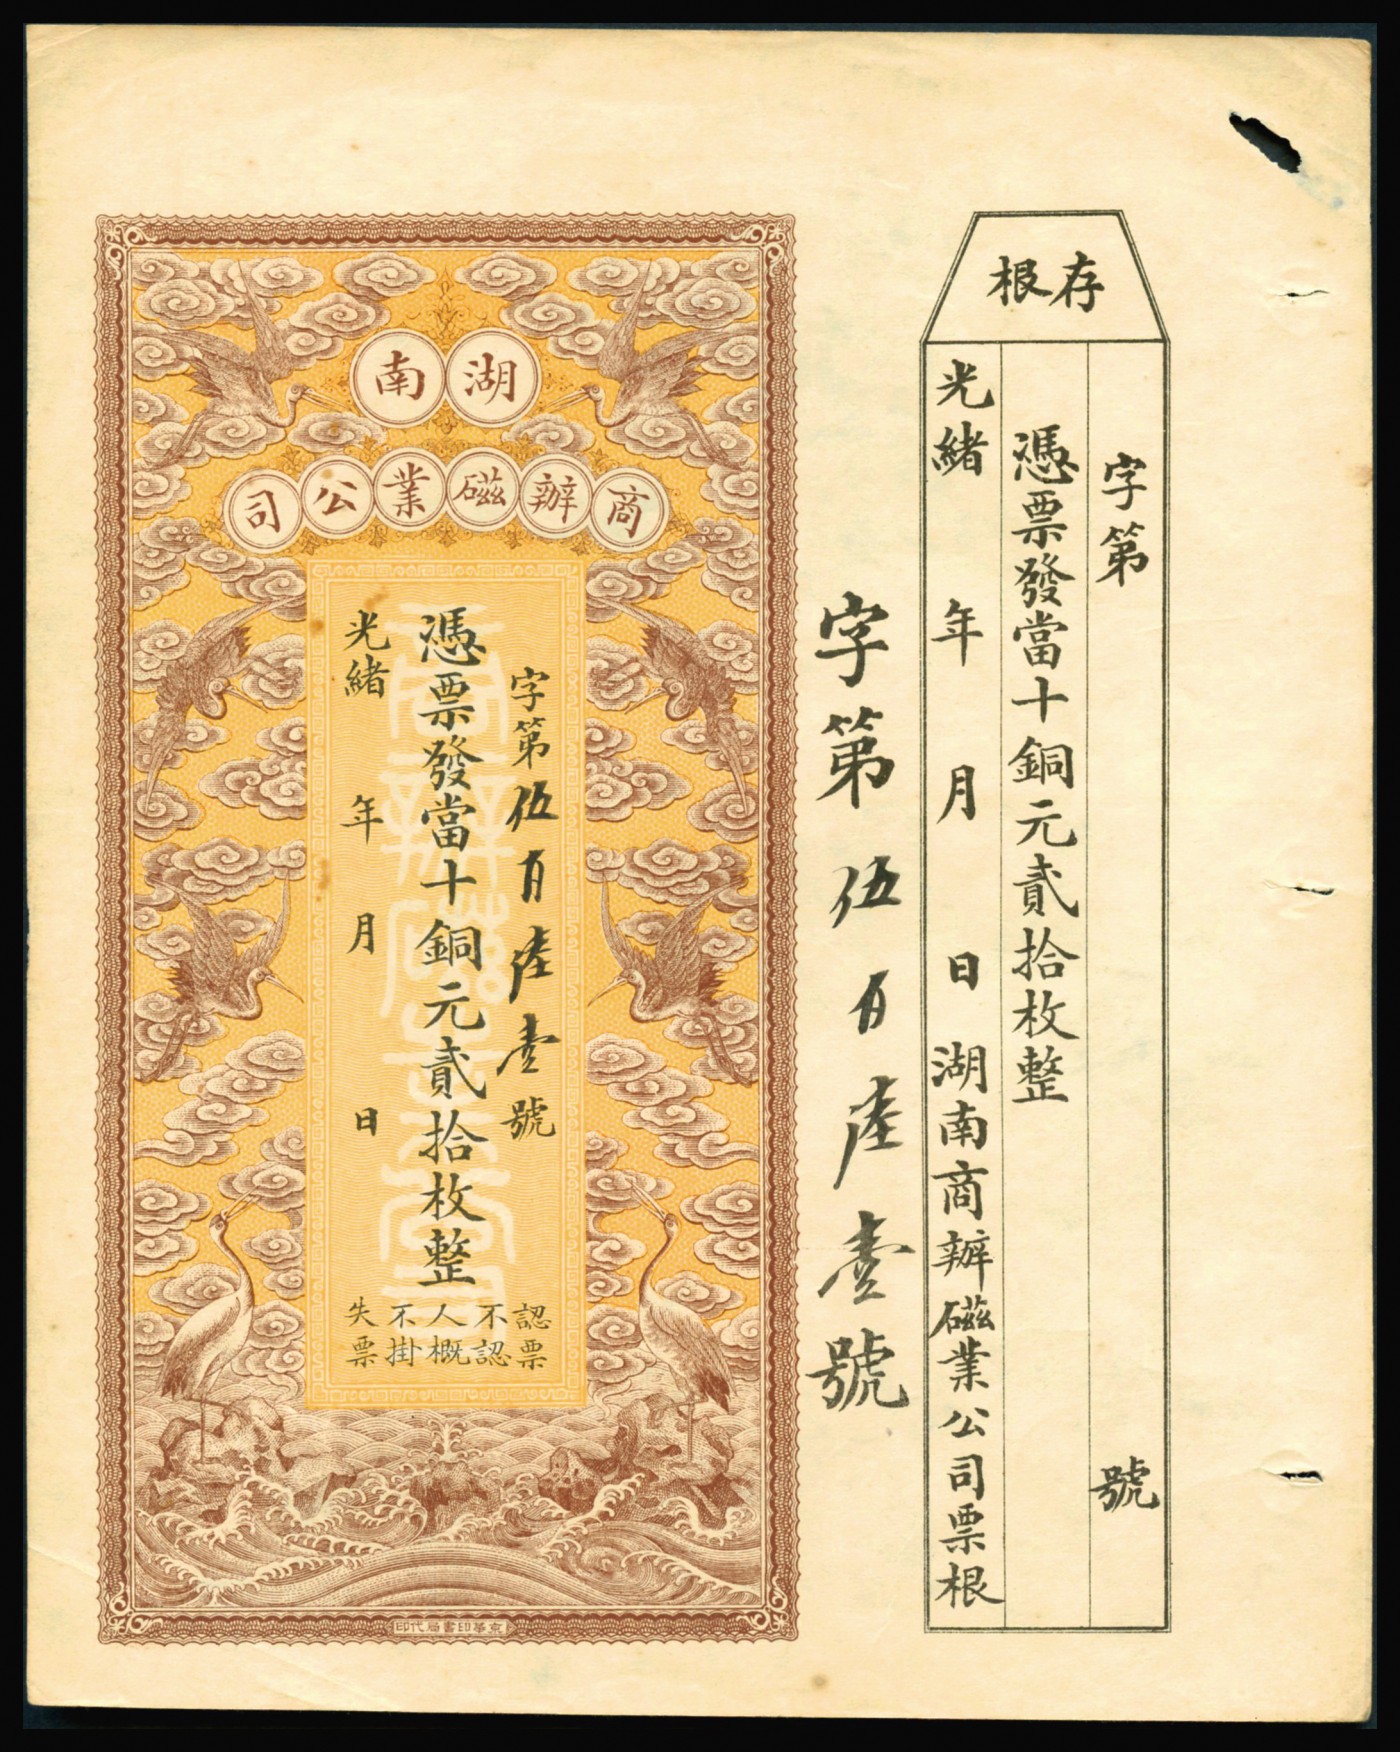 存根
字第　號
憑票發當十銅元貳拾枚整
光緒　年　月　日湖南商辦磁業公司票根
字第伍百陸壹號
湖南
商辦磁業公司
字第伍百陸壹號
憑票發當十銅元貳拾枚整
光緒　年　月　日
認票
不認
人概
不掛
失票
商辦磁業公司
京華印書局代印